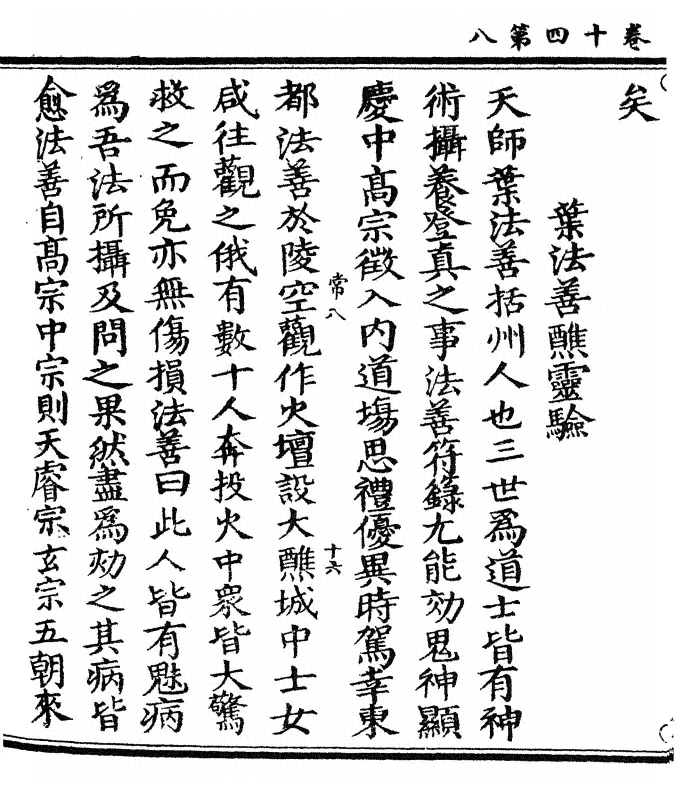 卷十四第八
矣
葉法善醮靈驗
天師葉法善括州人也三世爲道士皆有神
術攝養登真之事法善符籙尤能劾鬼神顯
慶中高宗徵入內道場恩禮優異時駕幸東
都法善於陵空觀作火壇設大醮城中士女
咸往觀之俄有數十人奔投火中衆皆大驚
救之而免亦無傷損法善曰此人皆有魅病
爲吾法所攝及問之果然盡爲劾之其病皆
愈法善自高宗中宗則天睿宗玄宗五朝來
常八
十六